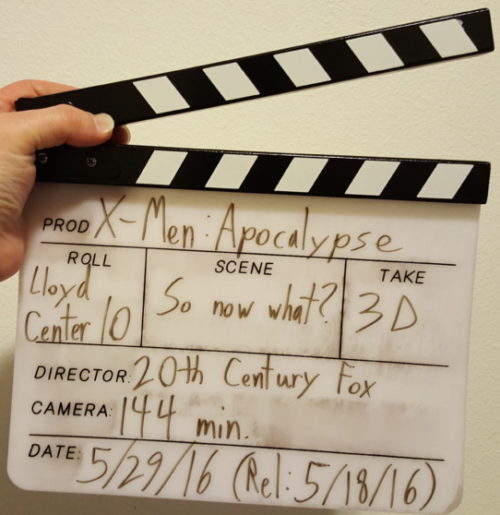 PROD X-Men: Apocalypse
ROLL SCENE TAKE
Lloyd Center 10 So now what? 3D
DIRECTOR: 20th Century Fox
CAMERA: 144 min.
DATE: 5/29/16 (Rel: 5/18/16)